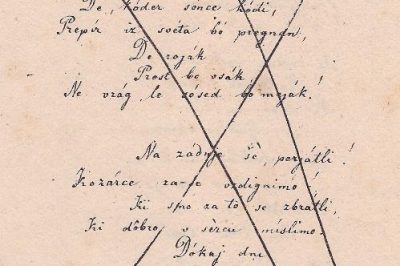 De, kóder sonce hódi,
Prepir iz svéta bó pregnàn,
De roják
Prost bo vsák,
Ne vrag, le sósed bo meják!
Na zadnje šè, perjátli!
Kozarce za-se vzdignimo!
Ki smo za to se zbratli,
Ki dôbro v sèrcu mislimo.
Dókaj dni